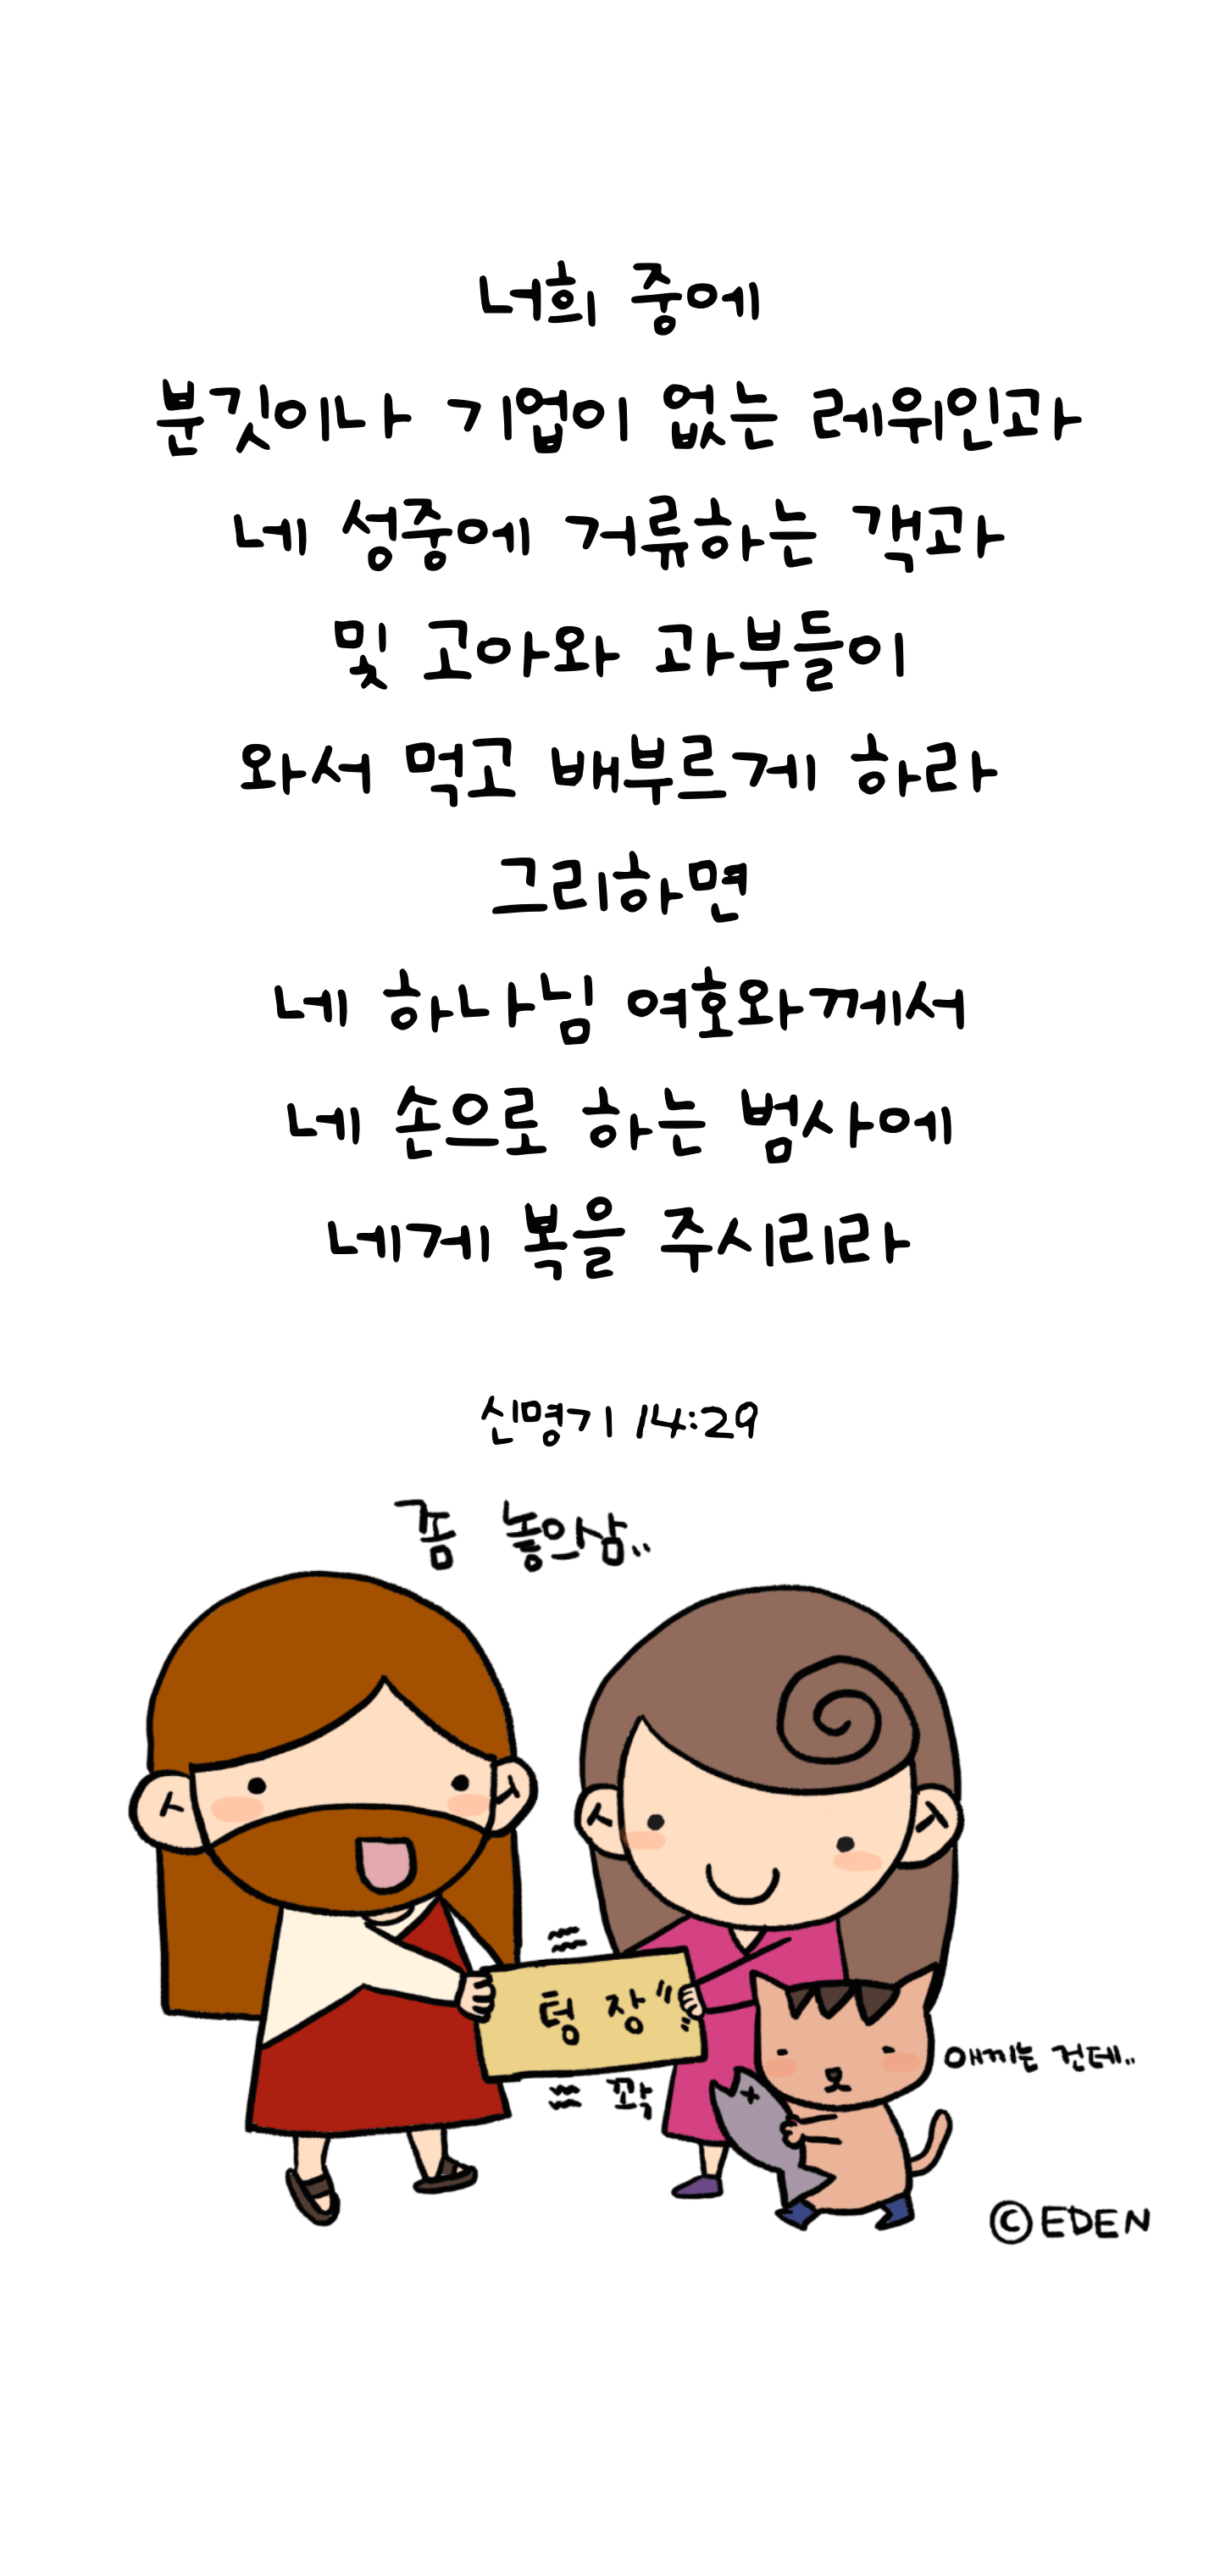 너희 중에
분깃이나 기업이 없는 레위인과
네 성중에 거류하는 객과
및 고아와 과부들이
와서 먹고 배부르게 하라
그리하면
네 하나님 여호와께서
네 손으로 하는 범사에
네게 복을 주시리라
신명기 14:29
좀 놓아삼..
텅장
꽉
애끼는 건데..
©EDEN